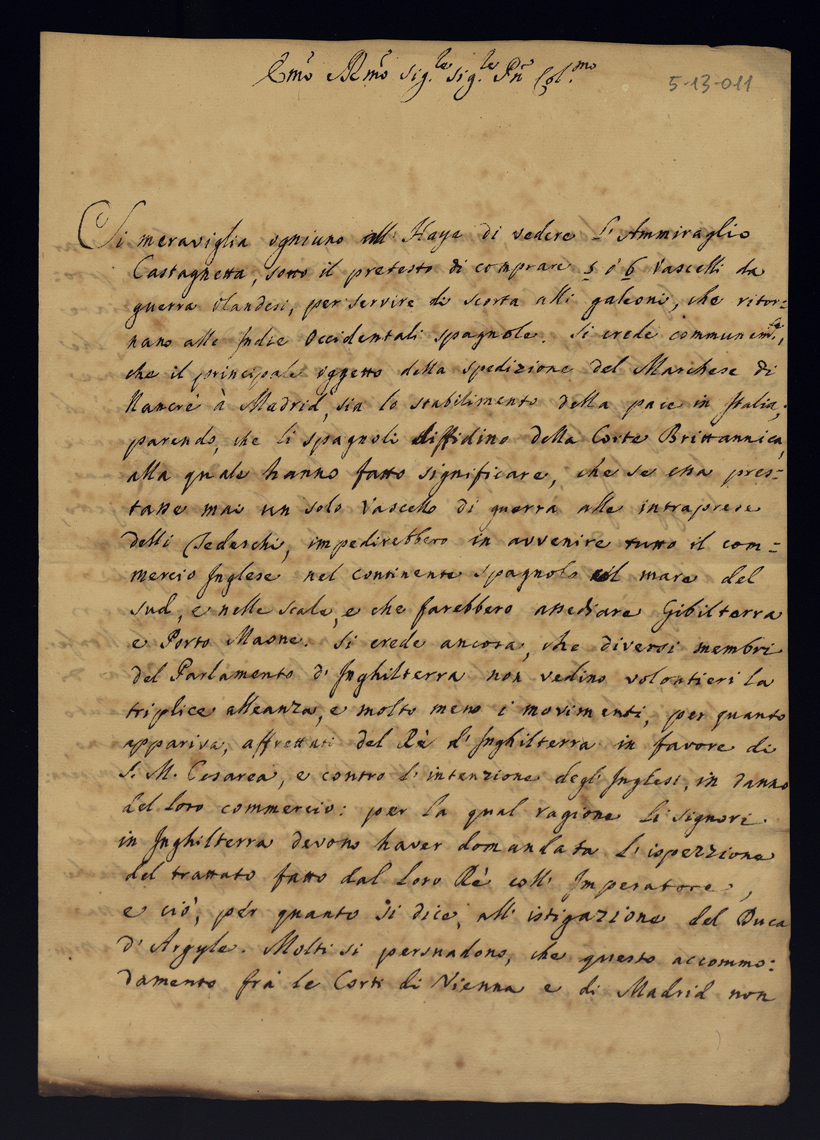 Emo Rmo Sig.le Sig.le Pñ Col.mo
5-13-011
Si meraviglia ogniuno all' Haya di vedere l'Ammiraglio
Castagnetta, sotto il pretesto di comprare 5 ò 6 Vascelli da
guerra Olandesi, per servire di scorta alli galeoni, che ritor=
nano alle Indie Occidentali spagnole. Si crede communem.te,
che il principale oggetto della spedizione del Marchese di
Nancrè à Madrid, sia lo stabilimento della pace in Italia;
parendo, che li spagnoli diffidino della Corte Brittannica,
alla quale hanno fatto significare, che se essa pres=
tasse mai un solo Vascello di guerra alle intraprese
delli Tedeschi, impedirebbero in avvenire tutto il com=
mercio Inglese nel continente spagnolo al mare del
sud, e nelle scale, e che farebbero assediare Gibilterra
e Porto Maone. Si crede ancora, che diversi membri
del Parlamento d'Inghilterra non vedino volontieri la
triplice alleanza, e molto meno i movimenti, per quanto
appariva, affrettati del Rè d'Inghilterra in favore di
S. M. Cesarea, e contro l'intenzione degl' Inglesi, in danno
del loro commercio: per la qual ragione li Signori
in Inghilterra devono haver domandata l'ispezzione
del trattato fatto dal loro Rè coll' Imperatore,
e ciò, per quanto si dice, all' istigazione del Duca
d'Argyle. Molti si persuadono, che questo accommo=
damento frà le Corti di Vienna e di Madrid non